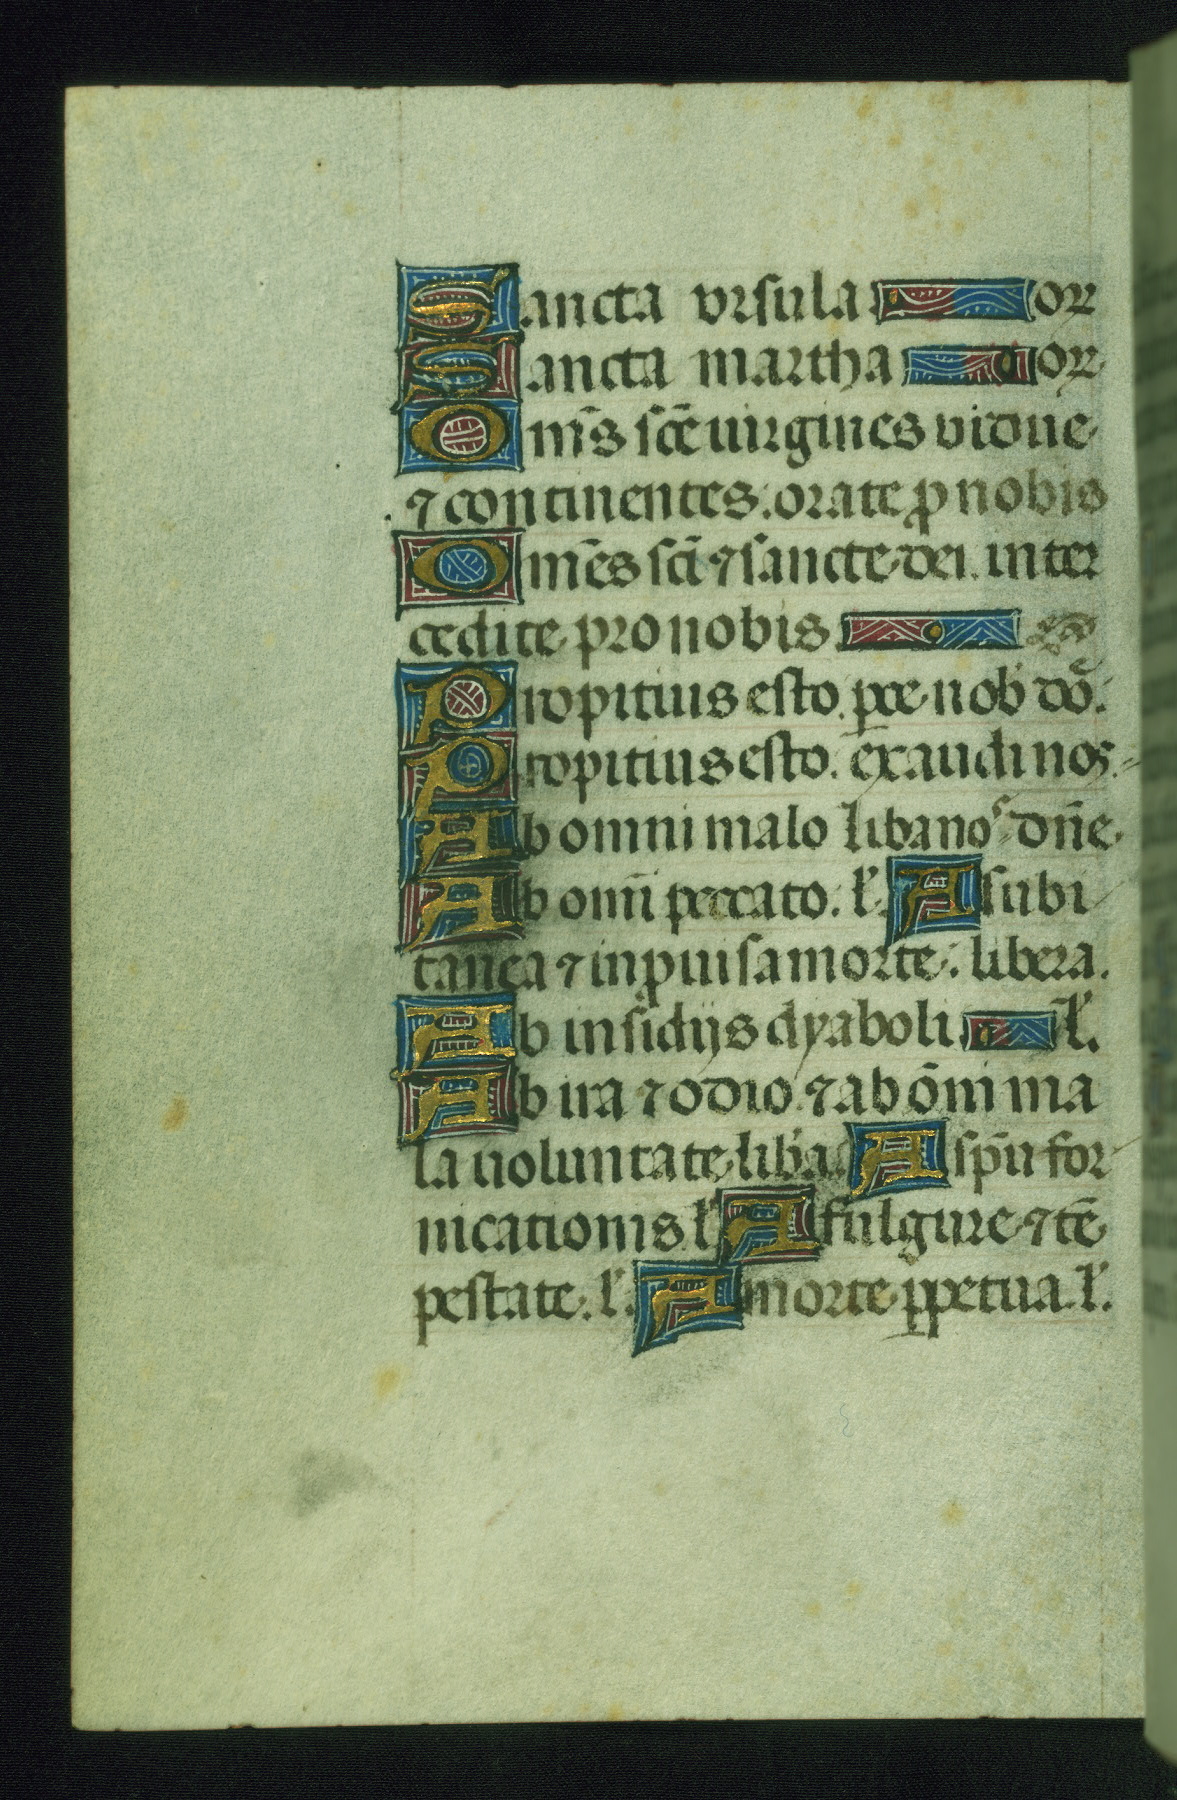 Sancta vrsula or
Sancta martha or
Om̄s sc̄e uirgines vidue
⁊ continentes. orate ꝓ nobis
Om̄es sc̄i ⁊ sancte dei. inter
cedite pro nobis
Propitius esto. ꝑce nob' dō.
Propitius esto. exaudi nos.
Ab omni malo libano's dn̄e.
Ab omī peccato. l'. A subi
tanea ⁊ inpuisa morte. libera.
Ab insidijs dyaboli. l'.
Ab ira ⁊ odio. ⁊ ab ōmi ma
la uoluntate. lib'a. A sp̄u for
nicationis l'. A fulgure ⁊ tē
pestate. l'. A morte ꝑpetua. l'.